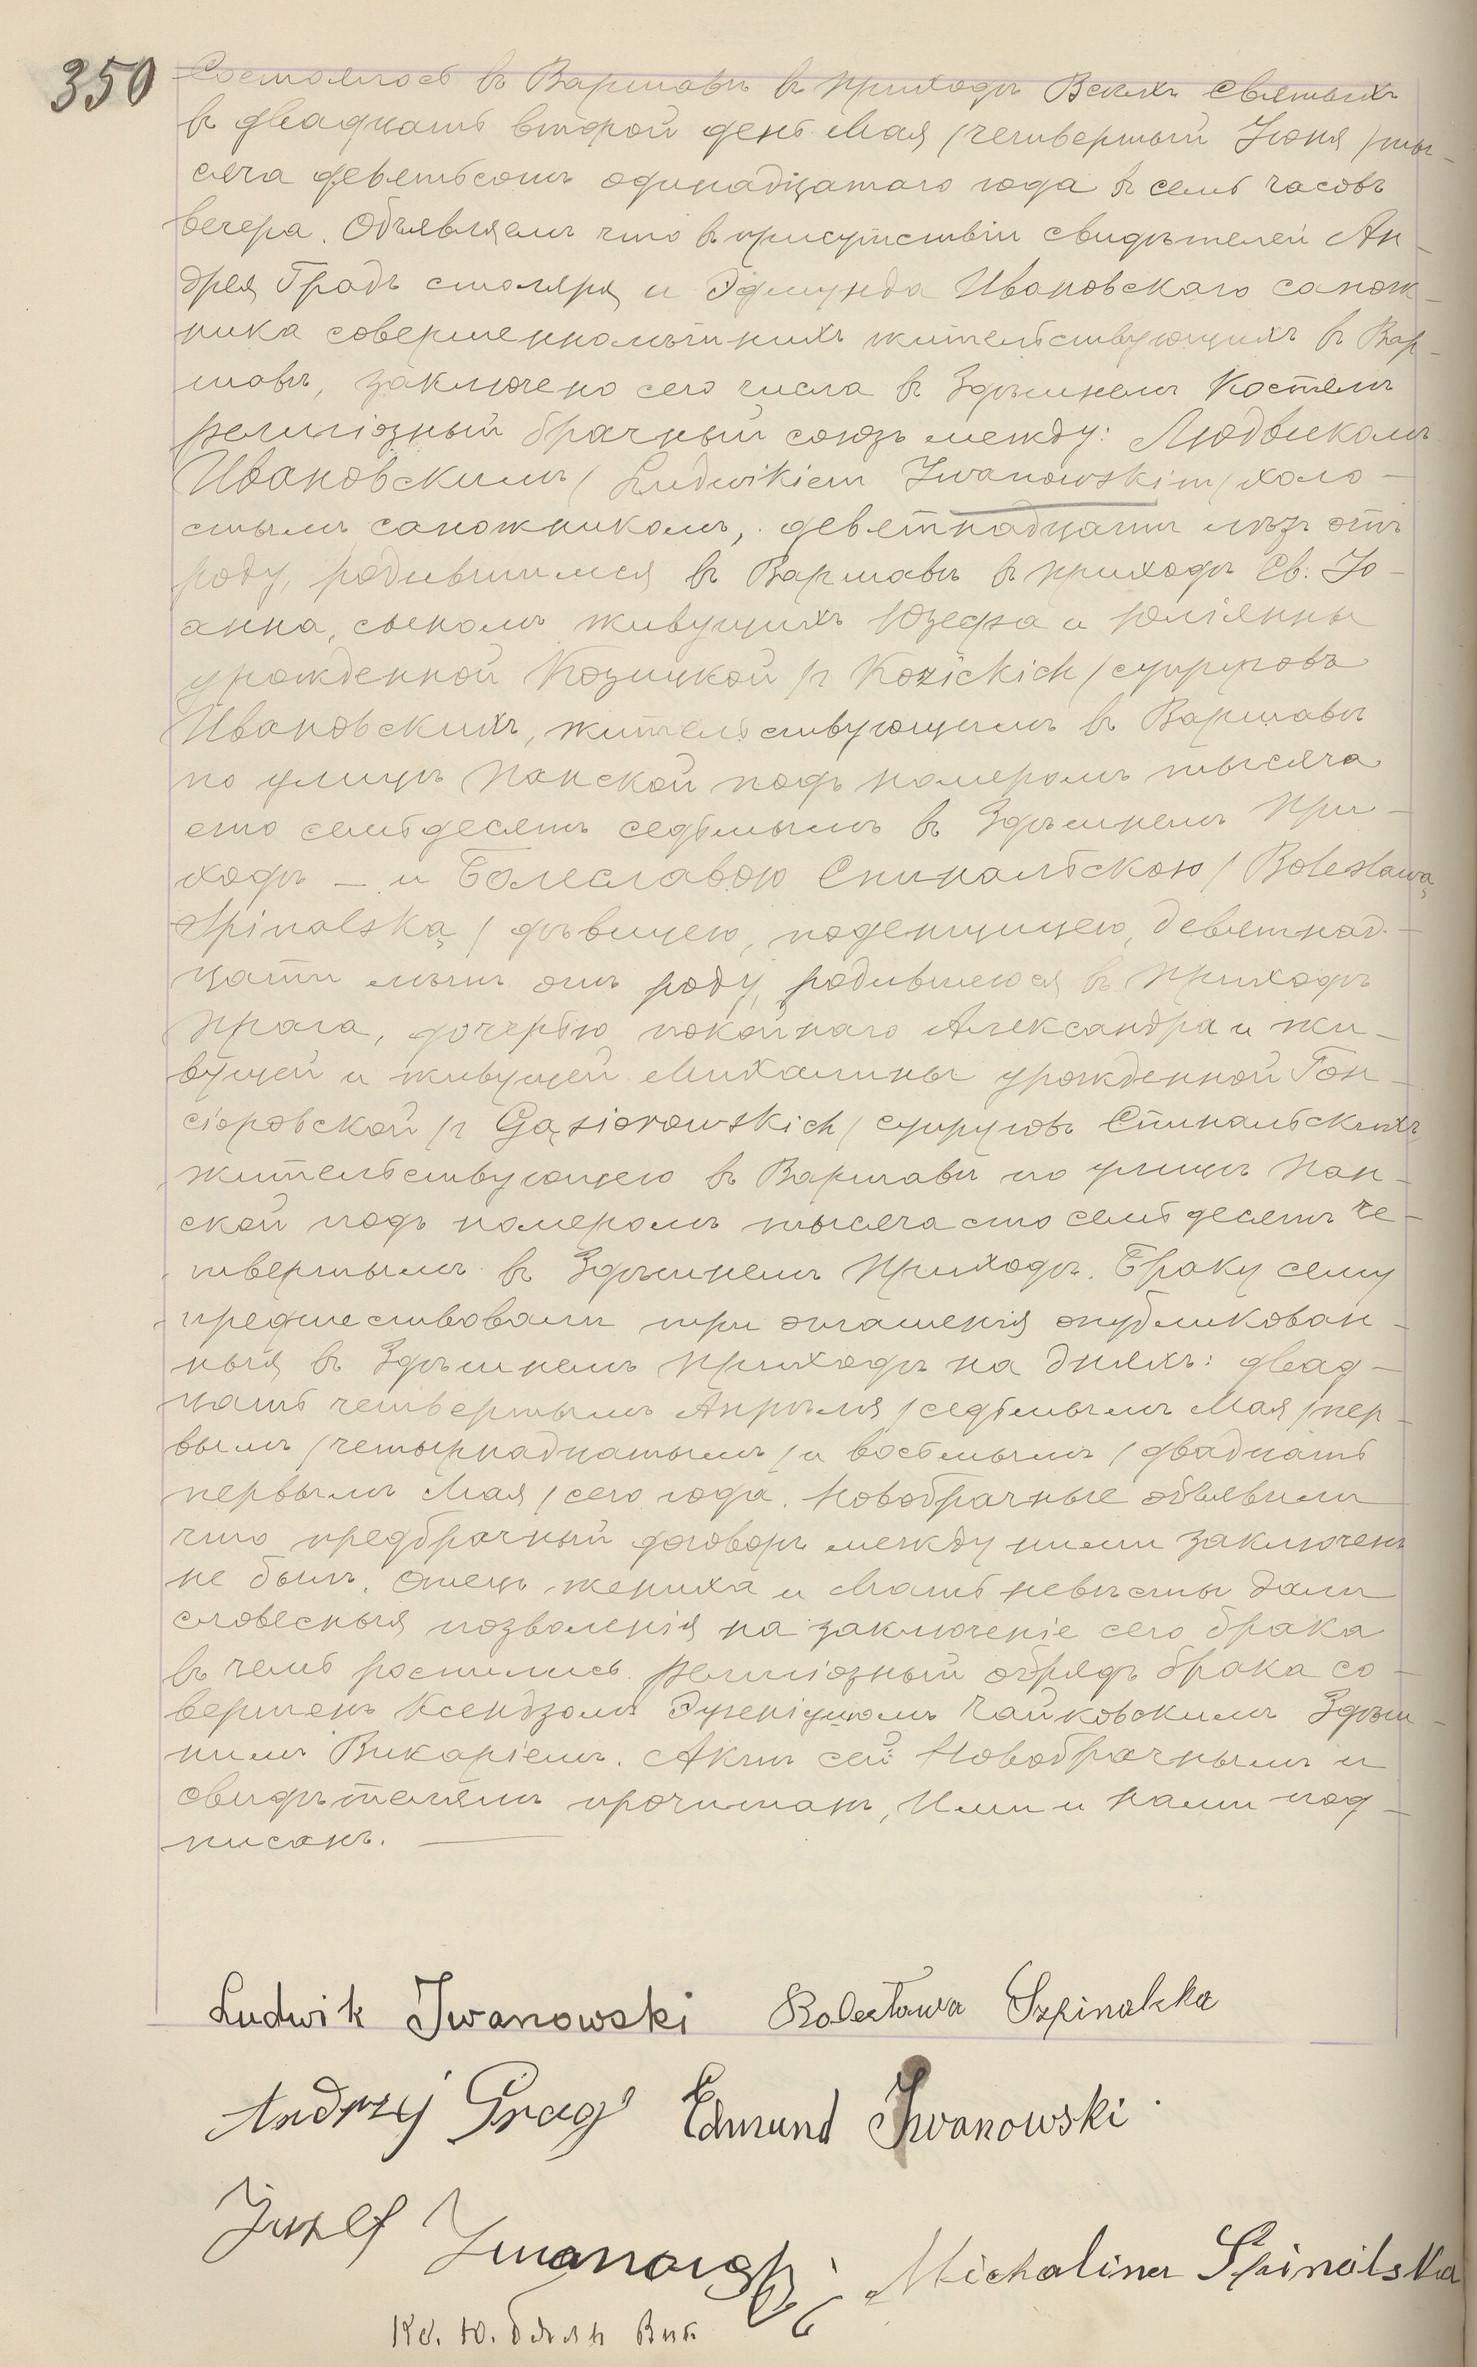 350
Состоялось въ Варшавѣ въ приходѣ Всѣхъ Святыхъ
въ двадцать второй день Мая /четвертый Іюня/ ты-
сяча девятьсотъ одинадцатаго года въ семь часовъ
вечера. Объявляемъ что въ присутствіи свидѣтелей Ан-
дрея Градъ столяра и Эдмунда Ивановскаго сапож-
ника совершеннолѣтнихъ жительствующихъ въ Вар-
шавѣ, заключено сего числа въ Здѣшнемъ Костелѣ
религіозный брачный союзъ между: Людвикомъ
Ивановскимъ / Ludwikiem Iwanowskim / холо-
стымъ сапожникомъ, девятнадцати лѣтъ отъ
роду, родившимся въ Варшавѣ въ приходѣ Св. Іо-
анна, сыномъ живущихъ Юзефа и Юліянны
урожденной Козицкой /z Kozickich/ супруговъ
Ивановскихъ, жительствующимъ въ Варшавѣ
по улицѣ Панской подъ номеромъ тысяча
сто семьдесятъ седьмымъ въ Здѣшнемъ При-
ходѣ — и Болеславою Спинальскою / Bolesławą
Spinalską / дѣвицею, поденщицею, девятнад-
цати лѣтъ отъ роду, родившеюся въ Приходѣ
Прага, дочерью покойнаго Александра и жи-
вущей и живущей Михалины урожденной Гон-
сіоровской /z Gąsiorowskich/ супруговъ Спинальскихъ
жительствующею въ Варшавѣ по улицѣ Пан-
ской подъ номеромъ тысяча сто семьдесятъ че-
твертымъ въ Здѣшнемъ Приходѣ. Браку сему
предшествовали три оглашенія опубликован-
ныя въ Здѣшнемъ приходѣ на дняхъ: двад-
цать четвертымъ Апрѣля /седьмымъ Мая/ пер-
вымъ /четырнадцатымъ/ и восьмымъ /двадцать
первымъ Мая/ сего года. Новобрачные объявили
что предбрачный договоръ между ними заключенъ
не былъ. Отецъ жениха и Мать невѣсты дали
словесныя позволенія на заключеніе сего брака
въ чемъ росписись. Религіозный обрядъ брака со-
вершенъ Ксендзомъ Чайковскимъ Здѣш-
нимъ Викаріемъ. Актъ сей Новобрачнымъ и
свидѣтелямъ прочитанъ, Ими и нами под-
писанъ.
Ludwik Iwanowski Bolesława Szpinalska
Andrzej Edmund Iwanowski
Józef Iwanowski Michalina Spinalska
Кс. Ю. Вик